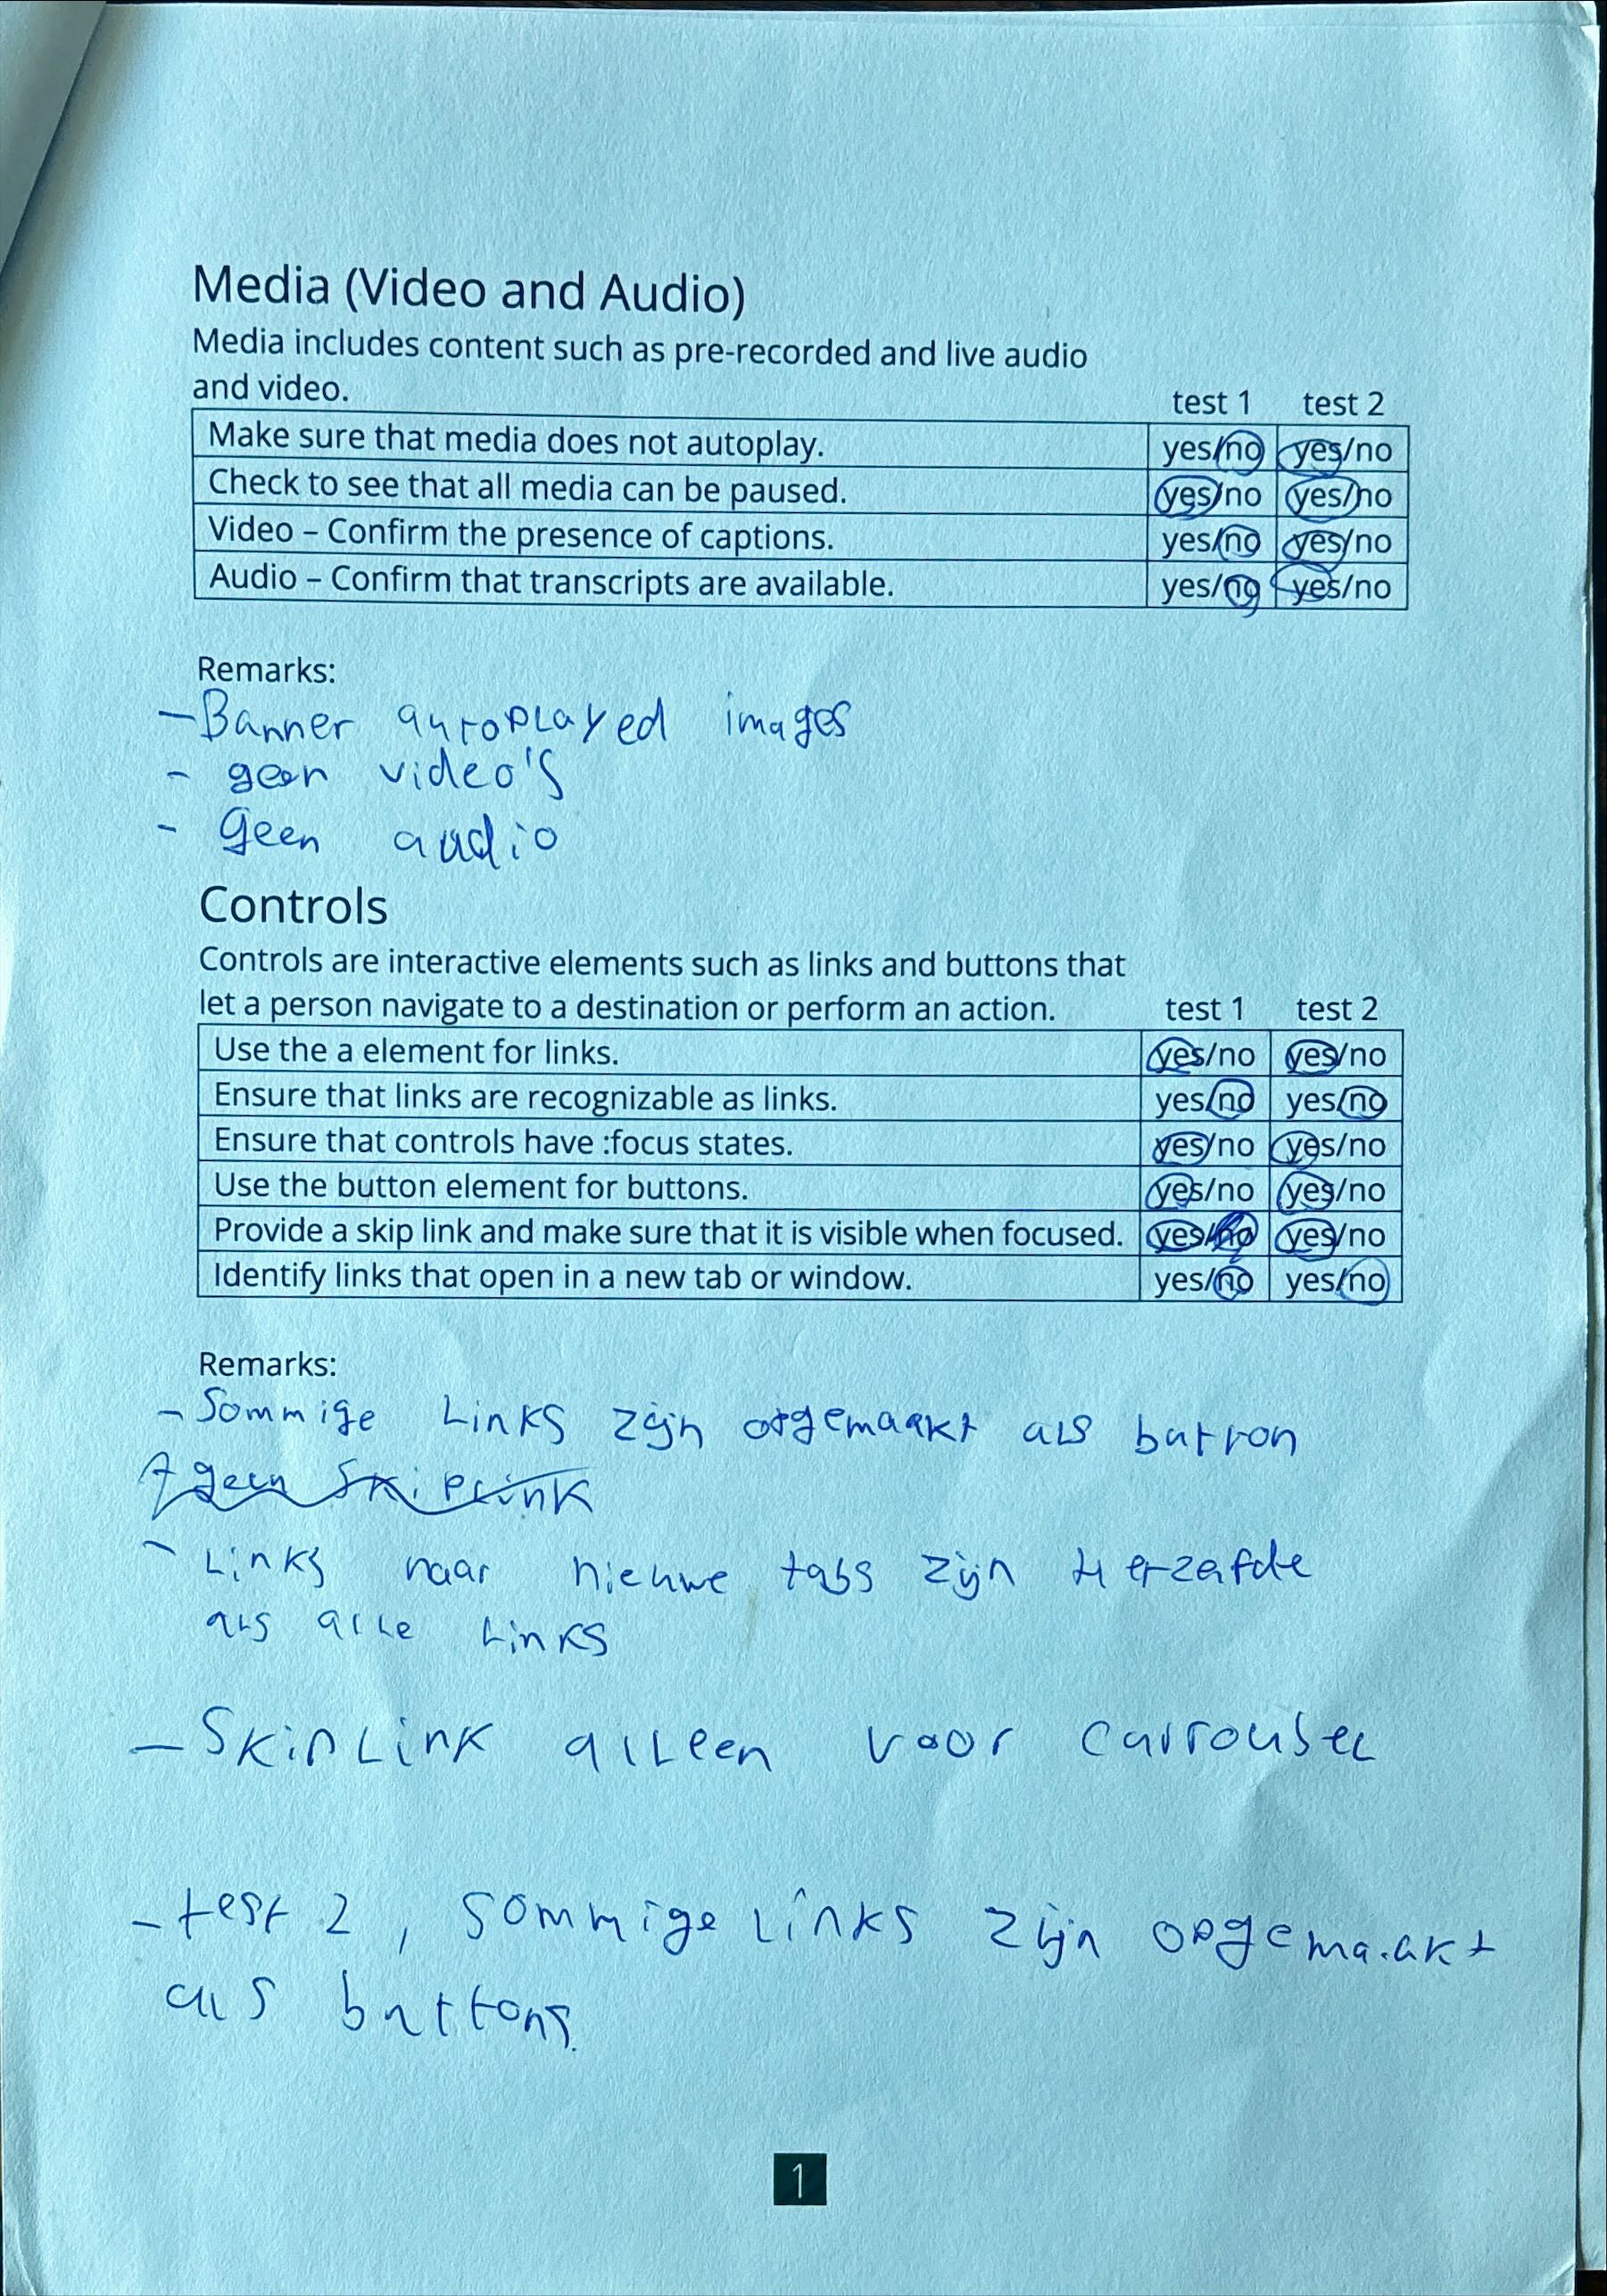 Media (Video and Audio)
Media includes content such as pre-recorded and live audio
and video. test 1 test 2
Make sure that media does not autoplay. yes/no yes/no
Check to see that all media can be paused. yes/no yes/no
Video – Confirm the presence of captions. yes/no yes/no
Audio – Confirm that transcripts are available. yes/no yes/no
Remarks:
- Banner autoplayed images
- geen video's
- Geen audio
Controls
Controls are interactive elements such as links and buttons that
let a person navigate to a destination or perform an action. test 1 test 2
Use the a element for links. yes/no yes/no
Ensure that links are recognizable as links. yes/no yes/no
Ensure that controls have :focus states. yes/no yes/no
Use the button element for buttons. yes/no yes/no
Provide a skip link and make sure that it is visible when focused. yes/no yes/no
Identify links that open in a new tab or window. yes/no yes/no
Remarks:
- Sommige Links zijn opgemaakt als button
geen Skiplink
- Links naar nieuwe tabs zijn
als alle Links
- SkipLink alleen voor carrousel
- test 2, Sommige Links zijn opgemaakt
als buttons.
1